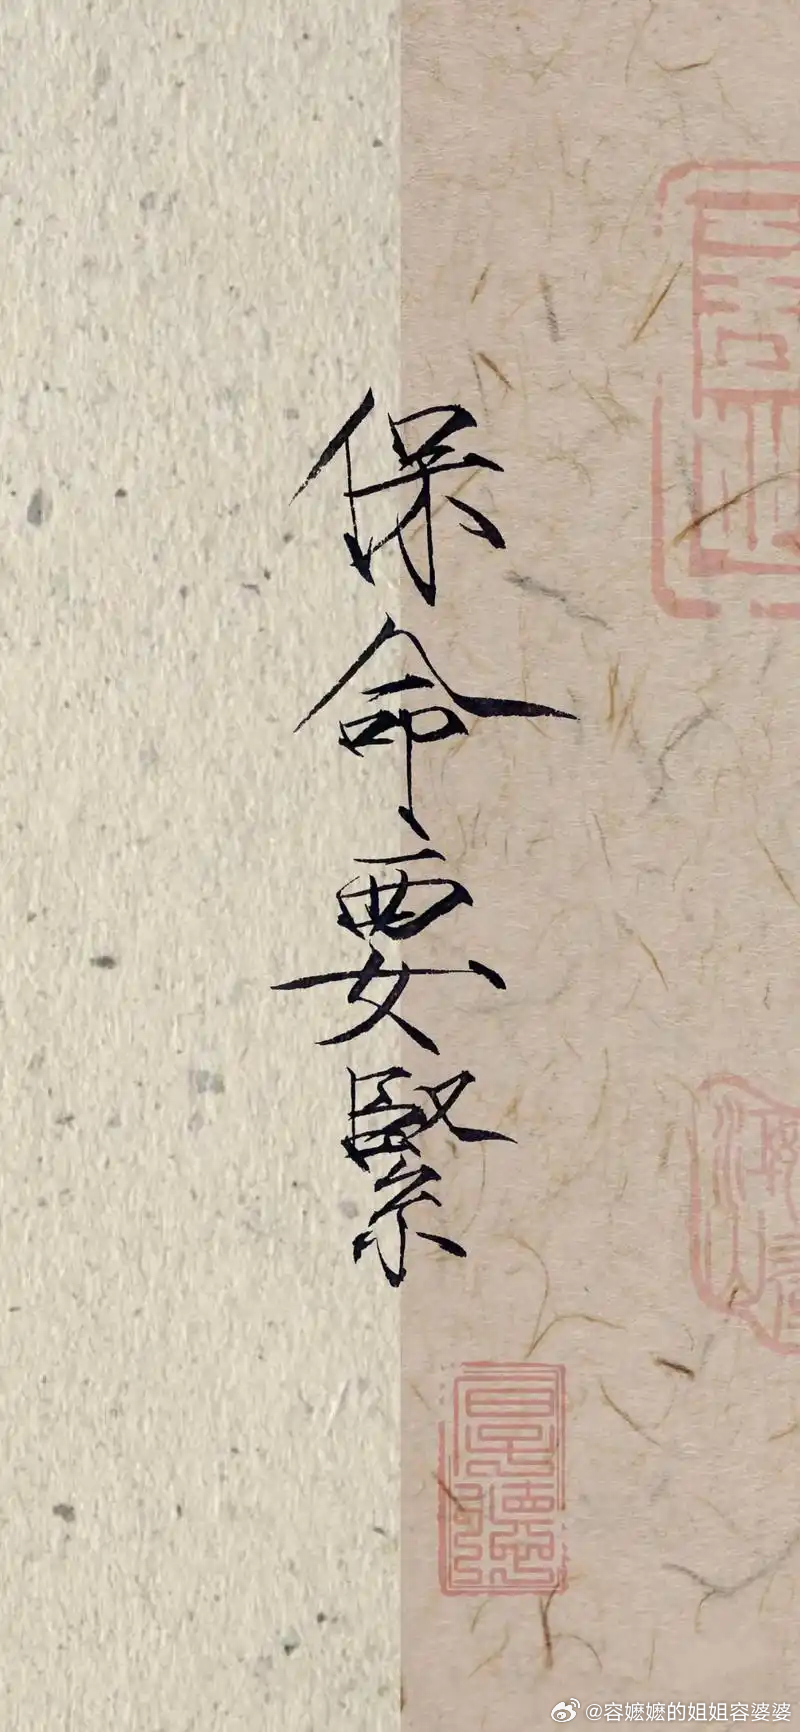 保命要緊
@容嬷嬷的姐姐容婆婆